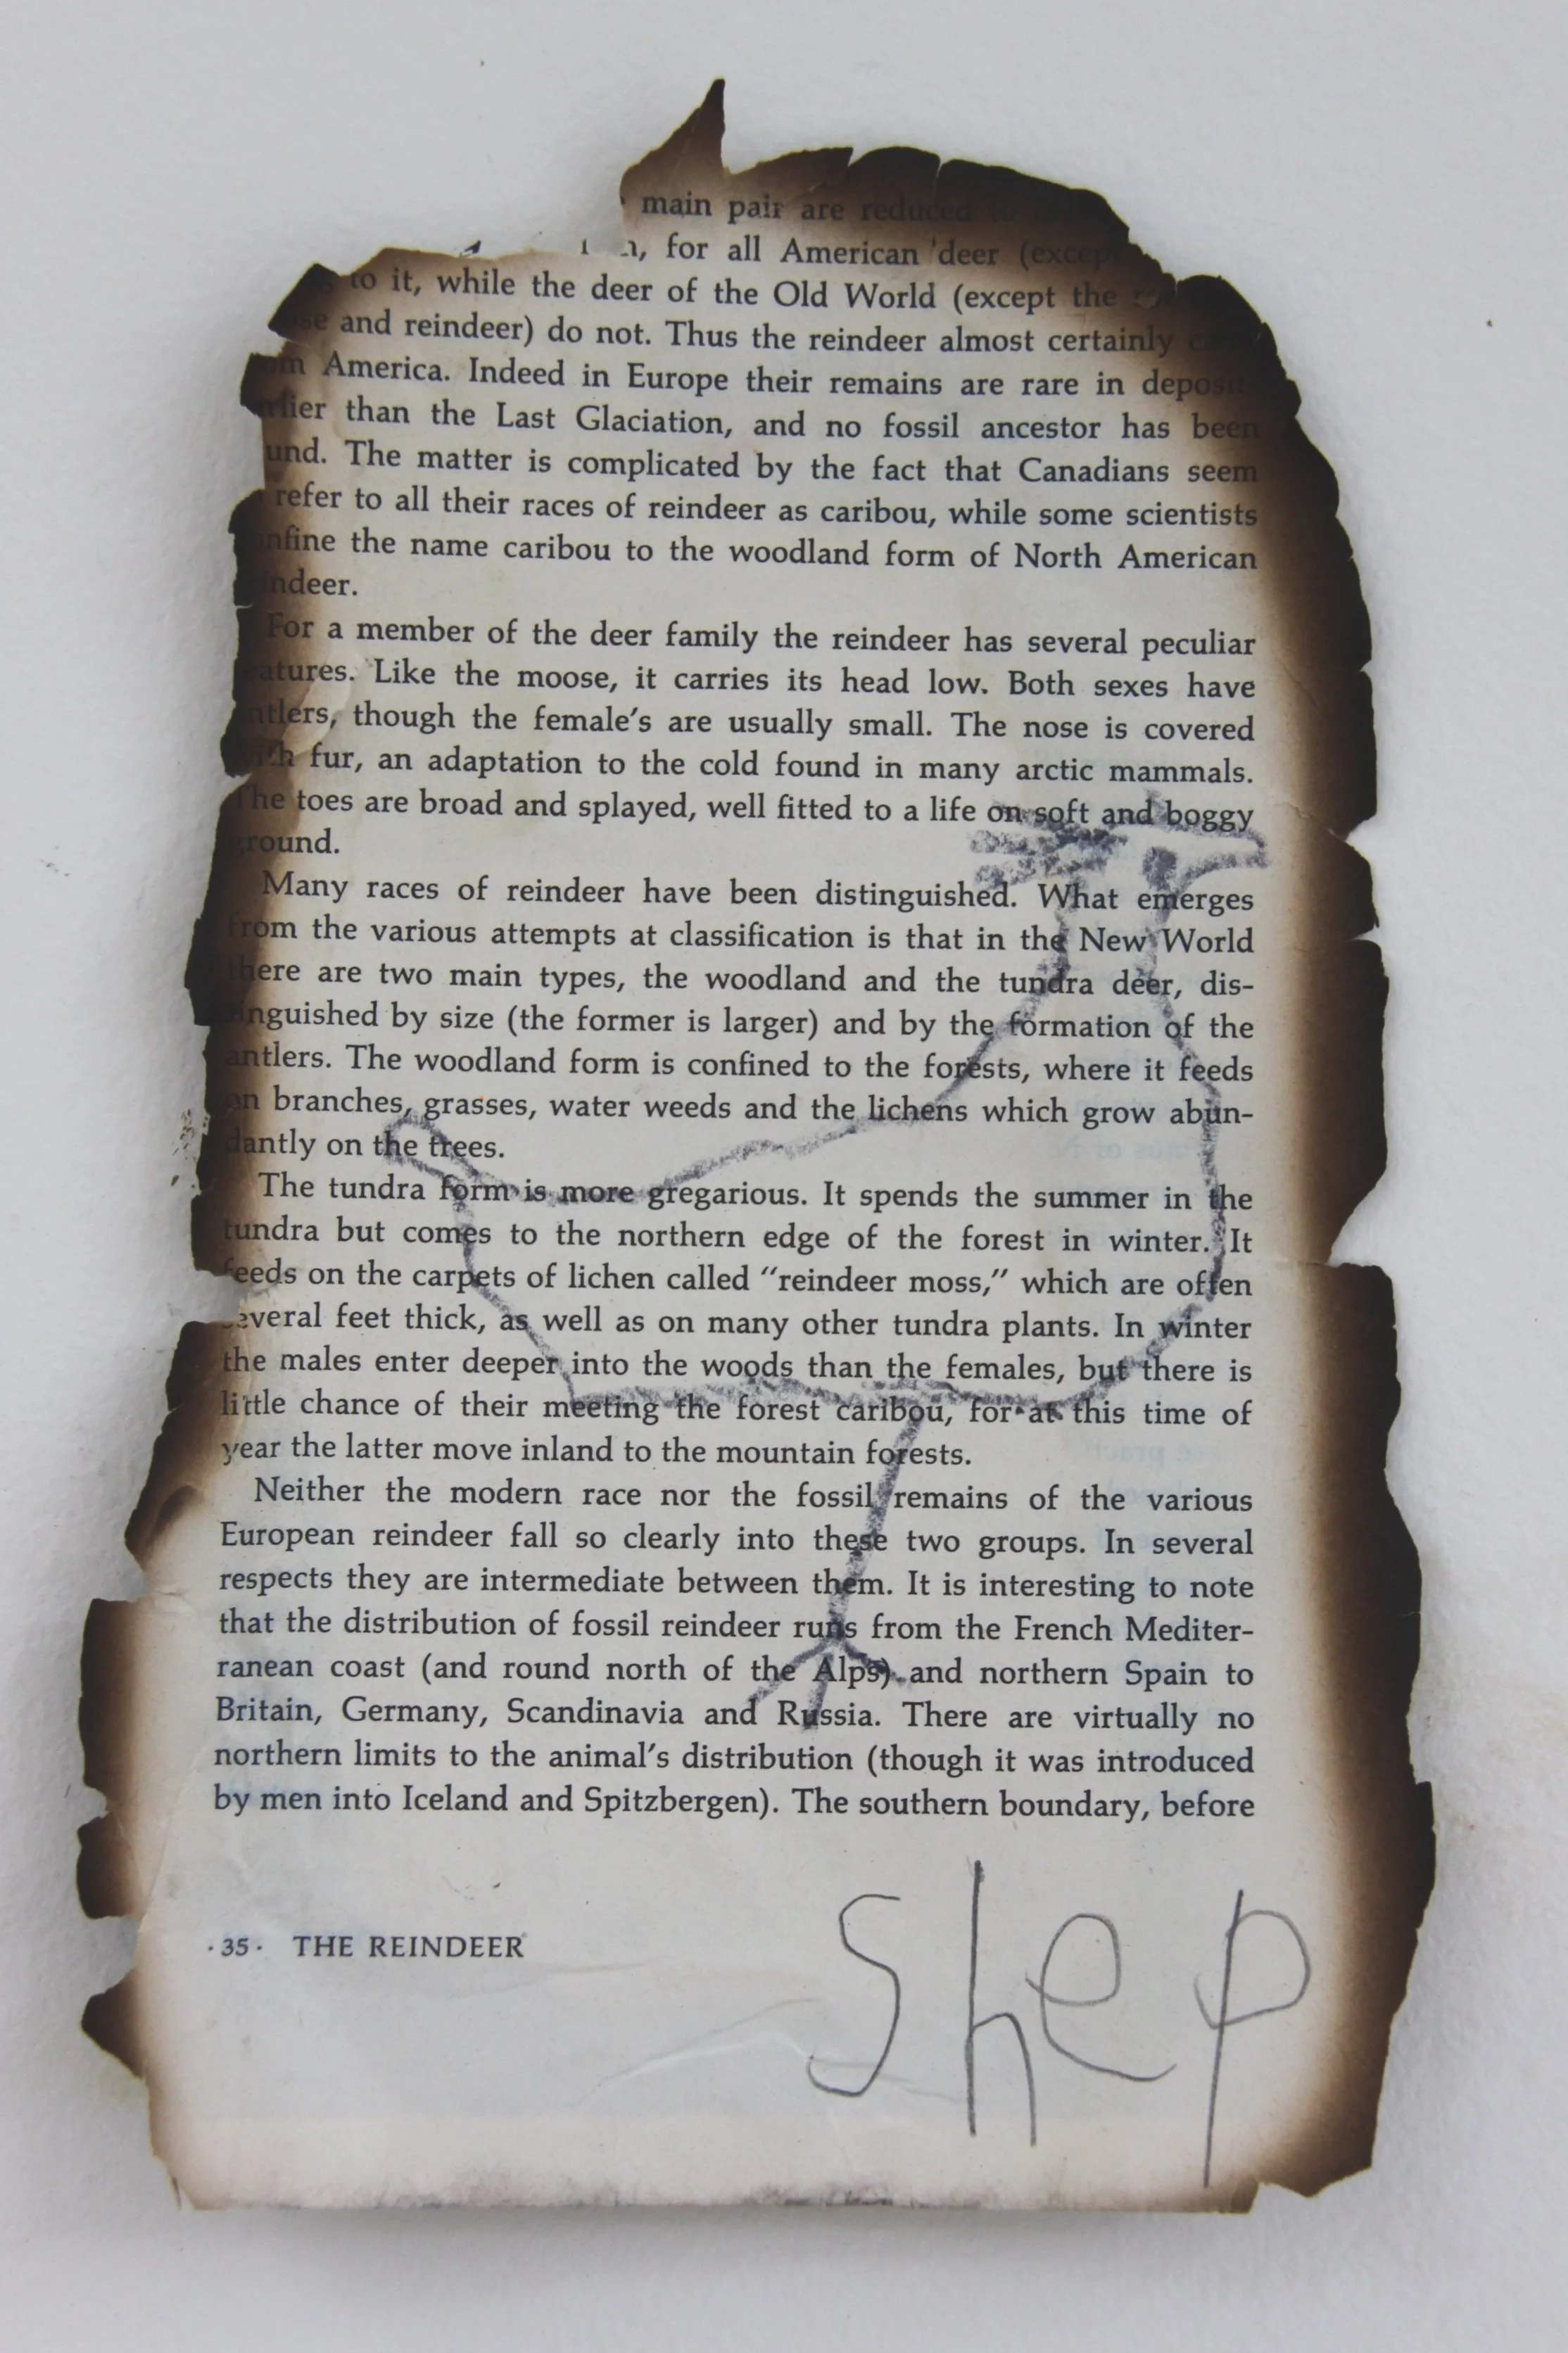 main pair are reduced to
for all American deer (except
to it, while the deer of the Old World (except the
and reindeer) do not. Thus the reindeer almost certainly
America. Indeed in Europe their remains are rare in
than the Last Glaciation, and no fossil ancestor has been
The matter is complicated by the fact that Canadians seem
refer to all their races of reindeer as caribou, while some scientists
the name caribou to the woodland form of North American

For a member of the deer family the reindeer has several peculiar
Like the moose, it carries its head low. Both sexes have
though the female's are usually small. The nose is covered
with fur, an adaptation to the cold found in many arctic mammals.
The toes are broad and splayed, well fitted to a life on soft and boggy
ground.
Many races of reindeer have been distinguished. What emerges
from the various attempts at classification is that in the New World
there are two main types, the woodland and the tundra deer, dis-
inguished by size (the former is larger) and by the formation of the
antlers. The woodland form is confined to the forests, where it feeds
on branches, grasses, water weeds and the lichens which grow abun-
dantly on the trees.
The tundra form is more gregarious. It spends the summer in the
tundra but comes to the northern edge of the forest in winter. It
feeds on the carpets of lichen called "reindeer moss," which are often
several feet thick, as well as on many other tundra plants. In winter
the males enter deeper into the woods than the females, but there is
little chance of their meeting the forest caribou, for at this time of
year the latter move inland to the mountain forests.
Neither the modern race nor the fossil remains of the various
European reindeer fall so clearly into these two groups. In several
respects they are intermediate between them. It is interesting to note
that the distribution of fossil reindeer runs from the French Mediter-
ranean coast (and round north of the Alps) and northern Spain to
Britain, Germany, Scandinavia and Russia. There are virtually no
northern limits to the animal's distribution (though it was introduced
by men into Iceland and Spitzbergen). The southern boundary, before
· 35 · THE REINDEER
Shep